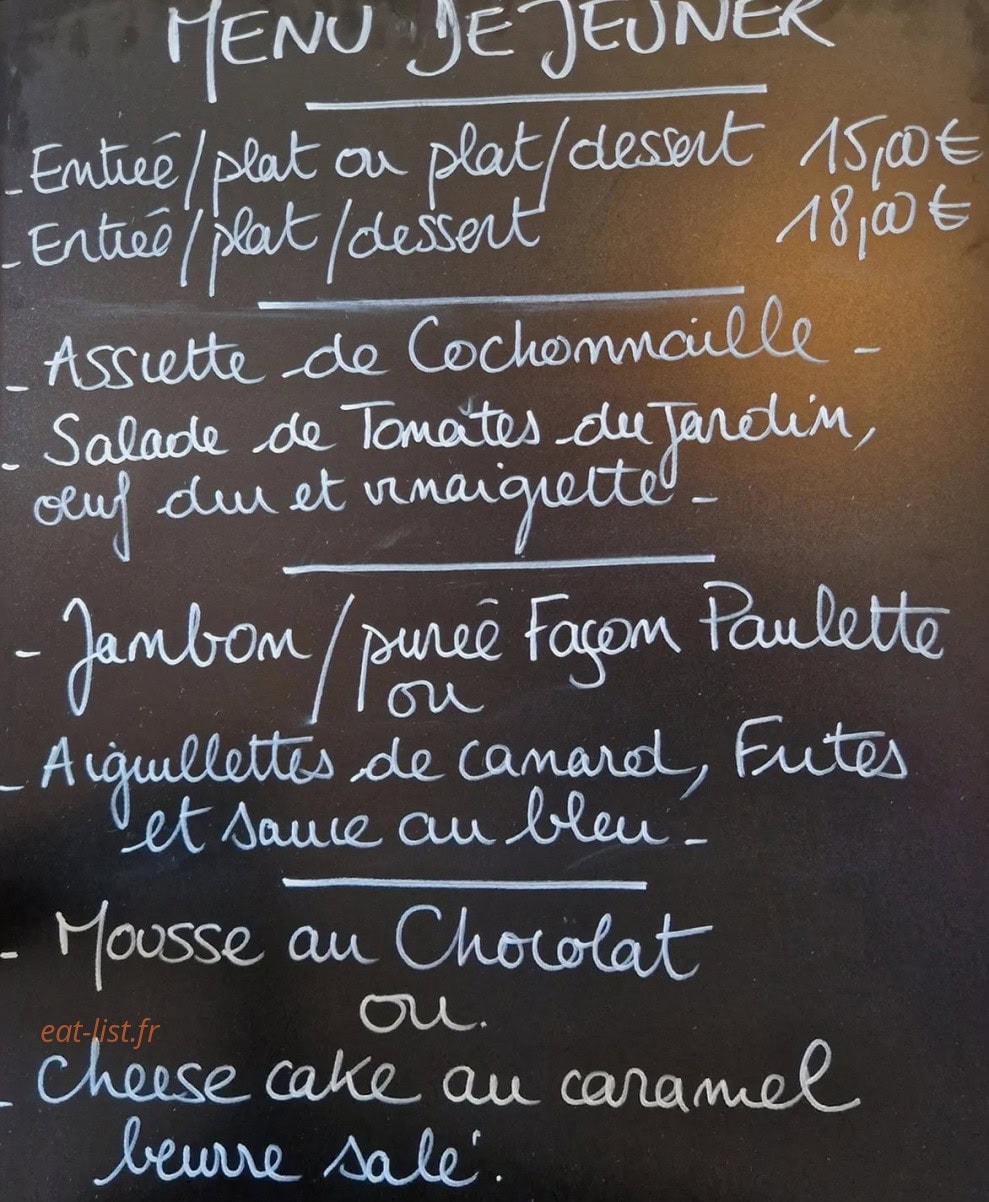 MENU DEJEUNER
- Entreé/plat ou plat/dessert 15,00€
- Entreé/plat/dessert 18,00€
- Assiette de Cochonnaille -
- Salade de Tomates du Jardin,
oeuf dur et vinaigrette -
- Jambon/pureé Façon Paulette
ou
- Aiguillettes de canard, Frites
et sauce au bleu -
- Mousse au Chocolat
ou.
eat-list.fr
- Cheese cake au caramel
beurre salé.